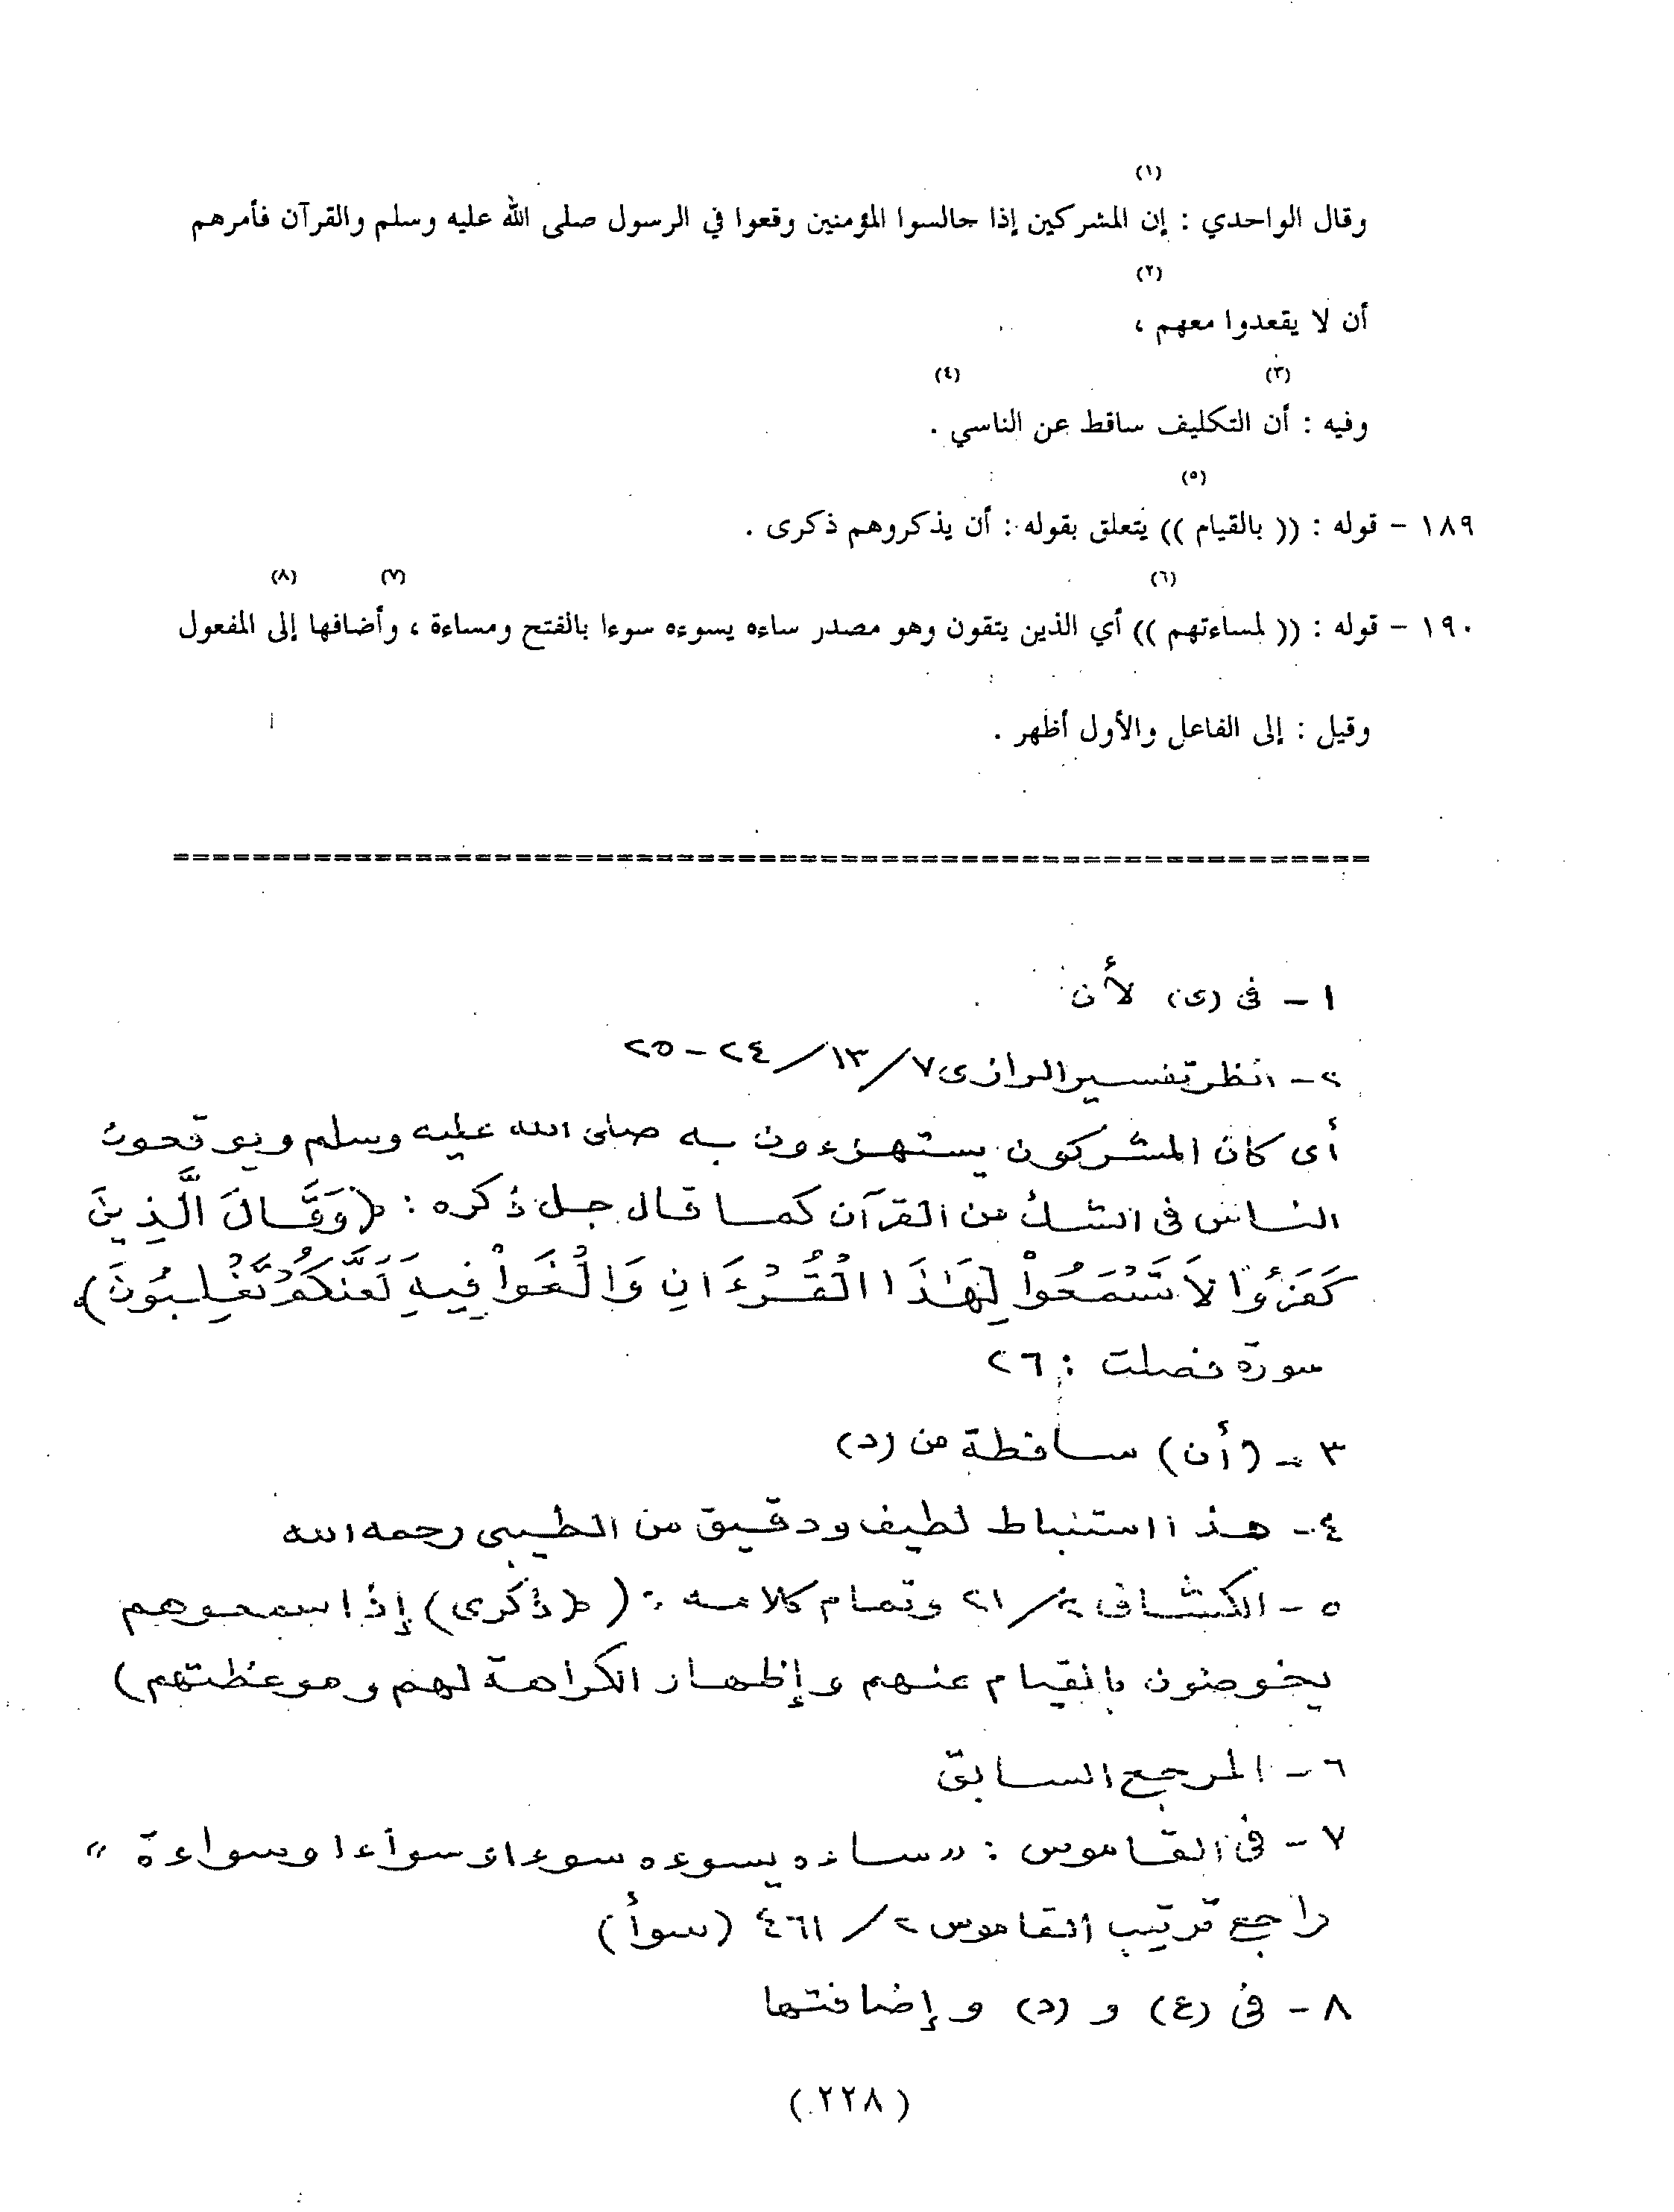 (١)
وقال الواحدي : إن المشركين إذا جالسوا المؤمنين وقعوا في الرسول صلى الله عليه وسلم والقرآن فأمرهم
(٢)
أن لا يقعدوا معهم ،
(٣) (٤)
وفيه : أن التكليف ساقط عن الناسي .
(٥)
١٨٩ - قوله : (( بالقيام )) يتعلق بقوله : أن يذكروهم ذكرى .
(٦) (٧) (٨)
١٩٠ - قوله : (( لمساءتهم )) أي الذين يتقون وهو مصدر ساءه يسوءه سوءا بالفتح ومساءة ، وأضافها إلى المفعول
وقيل : إلى الفاعل والأول أظهر .
١ - فى (ى) لأن
٢ - انظر تفسير الرازى ٧/١٣/٢٤-٢٥
أى كان المشركون يستهزءون به صلى الله عليه وسلم ويوقعون
الناس فى الشك من القرآن كما قال جل ذكره : (وَقَالَ الَّذِينَ
كَفَرُوا۟ لَا تَسْمَعُوا۟ لِهَٰذَا الْقُرْءَانِ وَالْغَوْا۟ فِيهِ لَعَلَّكُمْ تَغْلِبُونَ).
سورة فصلت : ٢٦
٣ - (أن) ساقطة من (د)
٤ - هذا استنباط لطيف ودقيق من الطيبى رحمه الله
٥ - الكشاف ٢/٢١ وتمام كلامه : ( (ذكرى) إذا سمعوهم
يخوضون بالقيام عنهم وإظهار الكراهة لهم وموعظتهم)
٦ - المرجع السابق
٧ - فى القاموس : " ساءه يسوءه سوءا وسواءا وسواءة "
راجع ترتيب القاموس ٢/٤٦١ (سوأ)
٨ - فى (ع) و (د) وإضافتها
(٢٢٨)